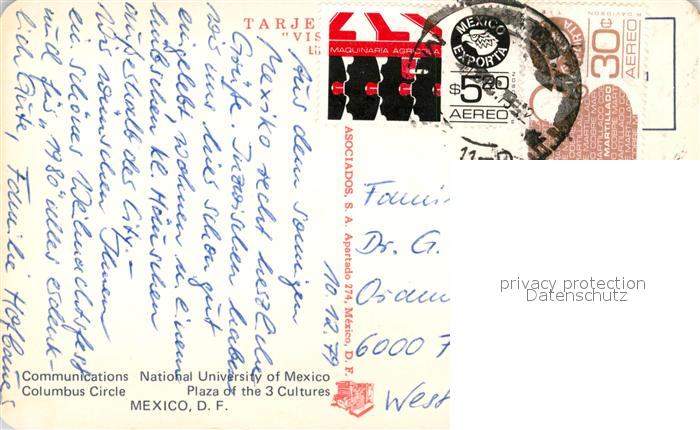 TARJE
"VIS
MAQUINARIA AGRICOLA
MEXICO
EXPORTA
$5.20
AEREO
30¢
AEREO
MARTILLADO
10.12.79
Aus dem sonnigen
Mexiko recht herzliche
Grüße. Inzwischen haben
wir uns hier schon gut
eingelebt, wohnen in einem
hübschen kl. Häuschen
außerhalb der City. -
Wir wünschen Ihnen
ein schönes Weihnachtsfest
und für "1980" alles erdenk-
lich Gute, Familie
ASOCIADOS, S. A. Apartado 274, México, D. F.
Dr. G.
6000 F
West
privacy protection
Datenschutz
Communications National University of Mexico
Columbus Circle Plaza of the 3 Cultures
MEXICO, D. F.